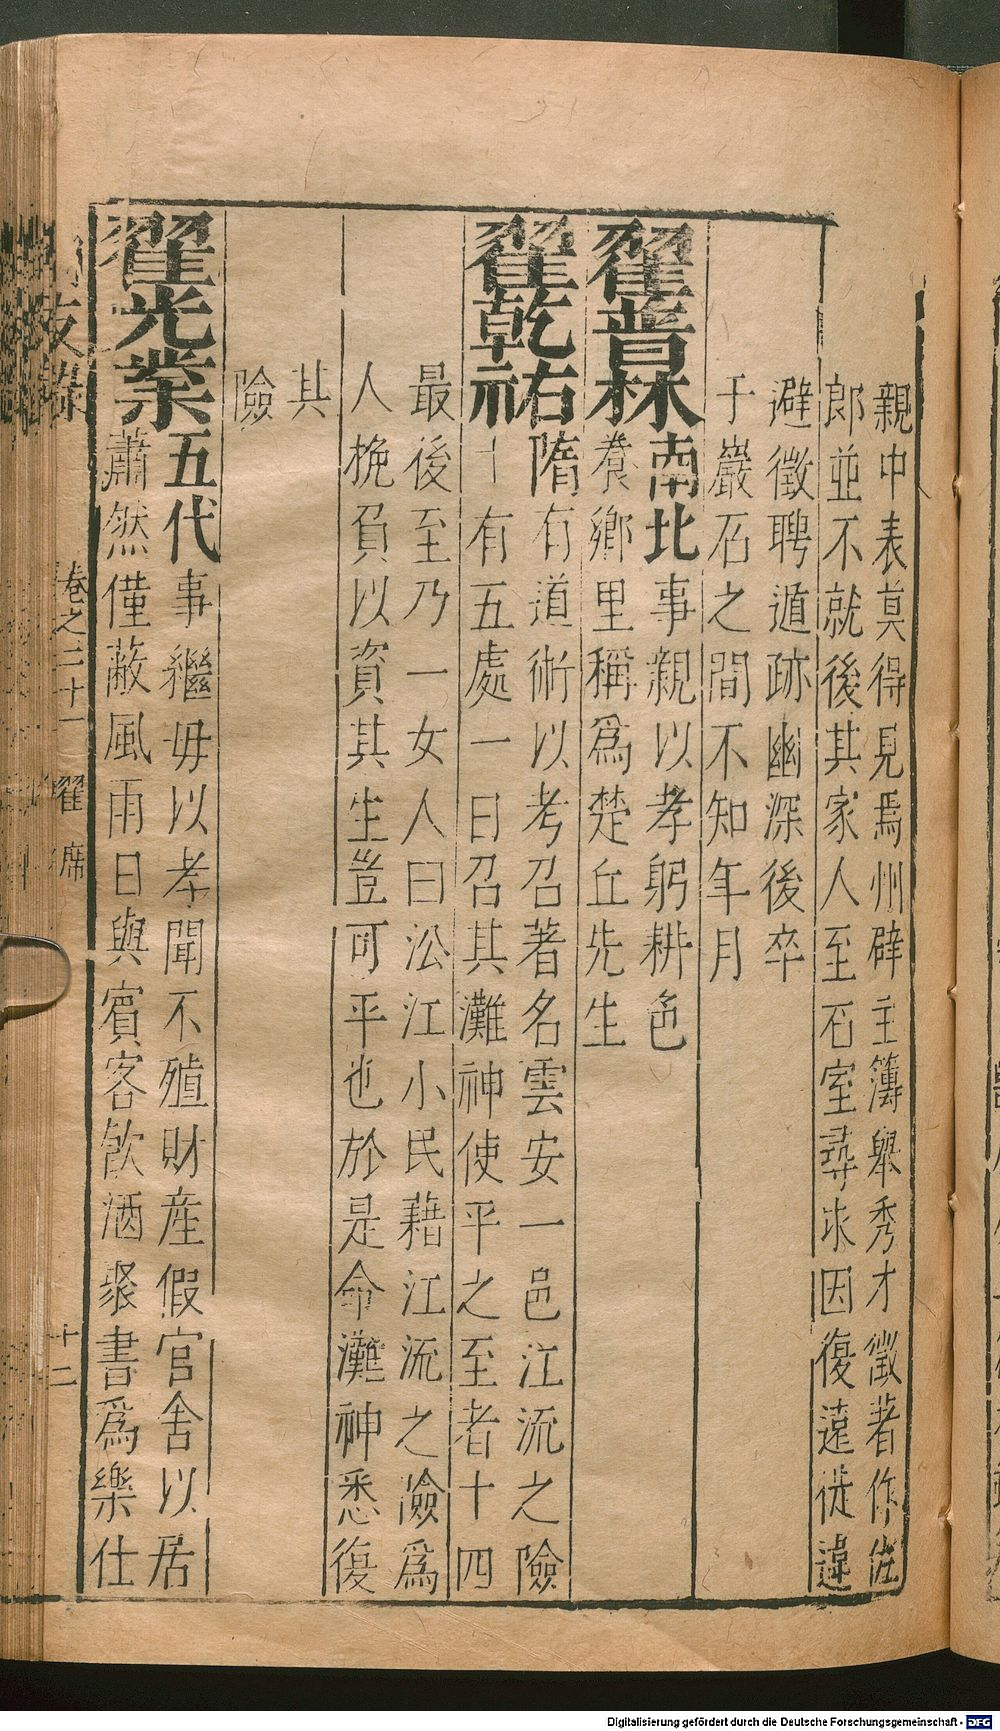 親中表莫得見焉州辟主簿舉秀才徵著作佐
郎並不就後其家人至石室尋求因復遠徙違
避徵聘遁跡幽深後卒
于巖石之間不知年月
翟普林南北事親以孝躬耕色
養鄉里稱爲楚丘先生
翟乾祐隋有道術以考召著名雲安一邑江流之險
十有五處一日召其灘神使平之至者十四
最後至乃一女人曰泌江小民藉江流之險爲
人挽負以資其生豈可平也於是命灘神悉復
其
險
翟光業五代事繼母以孝聞不殖財産假官舍以居
蕭然僅蔽風雨日與賓客飲酒聚書爲樂仕
卷之二十一 翟 席 十二
Digitalisierung gefördert durch die Deutsche Forschungsgemeinschaft - DFG